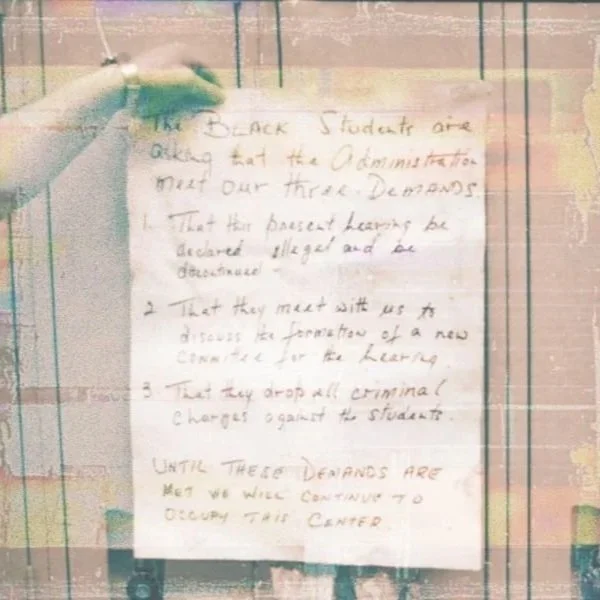 The BLACK Students are
asking that the Administration
meet our three DEMANDS.
1 That this present hearing be
declared illegal and be
discontinued -
2 That they meet with us to
discuss the formation of a new
Committee for the hearing.
3 That they drop all criminal
Charges against the students.
UNTIL THESE DEMANDS ARE
MET WE WILL CONTINUE TO
OCCUPY THIS CENTER.